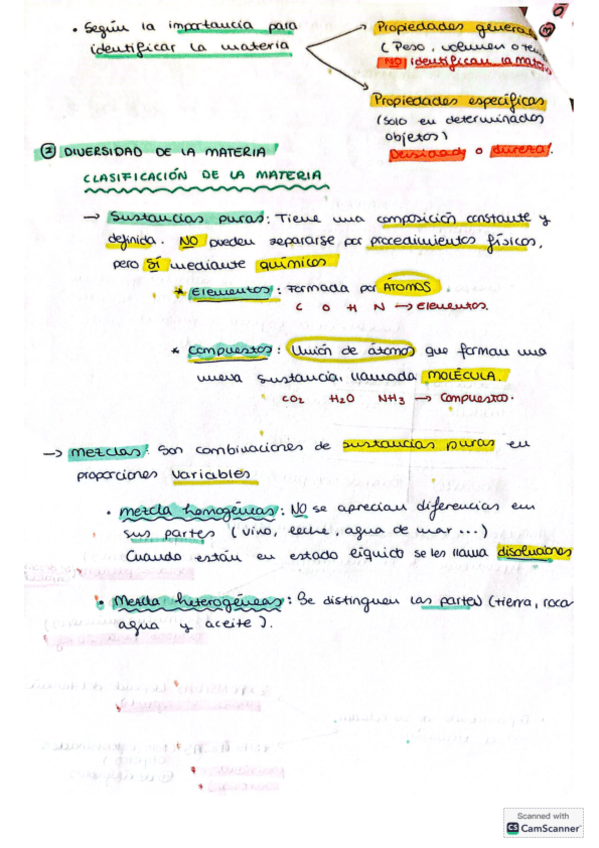 • Según la importancia para
identificar la materia
Propiedades genera
(Peso, volumen o te
NO identifican la mate
Propiedades específicas
(solo en determinados
objetos)
Densidad o dureza.
② DIVERSIDAD DE LA MATERIA
CLASIFICACIÓN DE LA MATERIA
→ Sustancias puras: Tiene una composición constante y
definida. NO pueden separarse por procedimientos físicos,
pero SÍ mediante químicos
* Elementos: Formada por ÁTOMOS.
C O H N → Elementos.
* Compuestos: Unión de átomos que forman una
nueva sustancia, llamada MOLÉCULA.
CO2 H2O NH3 → Compuestos.
→ Mezclas: Son combinaciones de sustancias puras en
proporciones variables
• Mezcla homogéneas: NO se aprecian diferencias em
sus partes (vino, leche, agua de mar ...)
Cuando están en estado líquido se les llama disoluciones
• Mezcla heterogéneas: Se distinguen las partes (tierra, roca
agua y aceite).
Scanned with
CS CamScanner